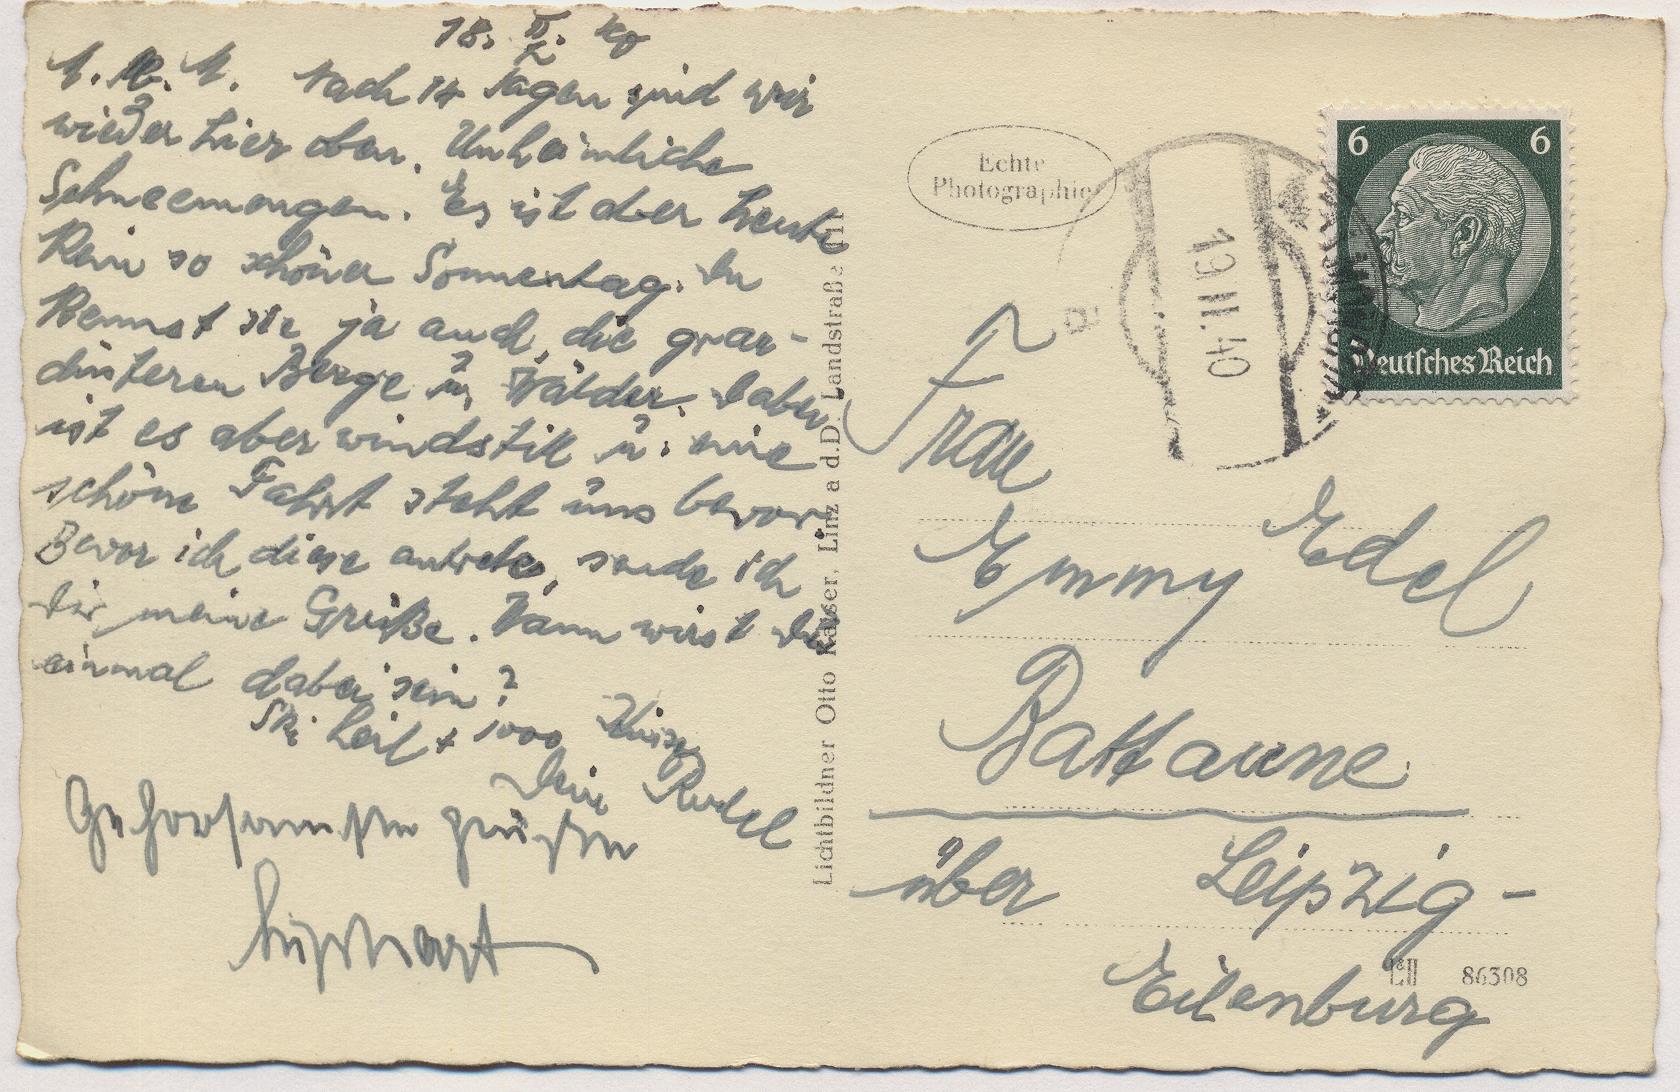 18. II. 40
M. M. M. Nach 14 Tagen sind wir
wieder hier oben. Unheimliche
Schneemengen. Es ist aber heute
kein so schöner Sonnentag. Du
kennst sie ja auch, die gran-
diosen Berge u. Wälder. Dabei
ist es aber windstill u. eine
schöne Fahrt steht uns bevor.
Bevor ich diese antrete, sende ich
Dir meine Grüße. Wann wirst Du
einmal dabei sein?
Ski Heil + 1000 Küsse
Dein Rudel
Gehorsamste Grüße
Echte
Photographie
19.II.40
6 6
Deutsches Reich
Frau
Emmy Edel
Battaune
über Leipzig-
Eilenburg
L&H 86308
Lichtbildner Otto Kaiser, Linz a.d.D. Landstraße